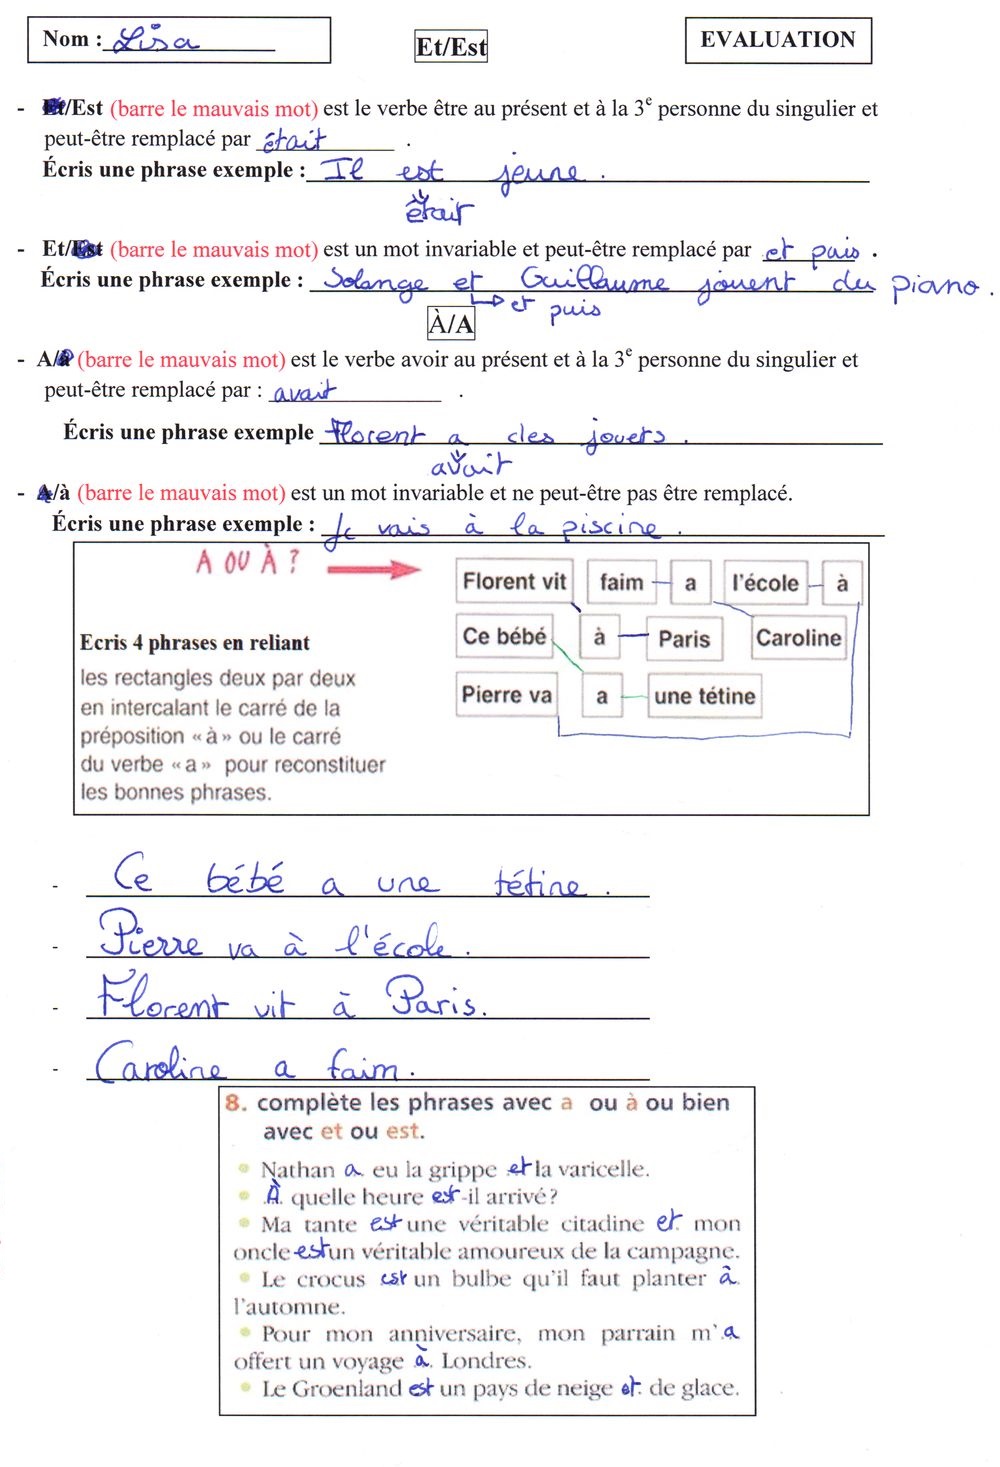 Nom : Lisa
Et/Est
EVALUATION
- Et/Est (barre le mauvais mot) est le verbe être au présent et à la 3e personne du singulier et
peut-être remplacé par était .
Écris une phrase exemple : Il est jeune .
était
- Et/Est (barre le mauvais mot) est un mot invariable et peut-être remplacé par et puis .
Écris une phrase exemple : Solange et Guillaume jouent du piano .
et puis
À/A
- A/à (barre le mauvais mot) est le verbe avoir au présent et à la 3e personne du singulier et
peut-être remplacé par : avait .
Écris une phrase exemple Florent a des jouets .
avait
- A/à (barre le mauvais mot) est un mot invariable et ne peut-être pas être remplacé.
Écris une phrase exemple : Je vais à la piscine .
A OU À ?
Florent vit faim a l'école à
Ecris 4 phrases en reliant
Ce bébé à Paris Caroline
les rectangles deux par deux
en intercalant le carré de la
Pierre va a une tétine
préposition « à » ou le carré
du verbe « a » pour reconstituer
les bonnes phrases.
- Ce bébé a une tétine .
- Pierre va à l'école .
- Florent vit à Paris.
- Caroline a faim .
8. complète les phrases avec a ou à ou bien
avec et ou est.
• Nathan a eu la grippe et la varicelle.
• À quelle heure est-il arrivé ?
• Ma tante est une véritable citadine et mon
oncle est un véritable amoureux de la campagne.
• Le crocus est un bulbe qu'il faut planter à
l'automne.
• Pour mon anniversaire, mon parrain m'a
offert un voyage à Londres.
• Le Groenland est un pays de neige et de glace.